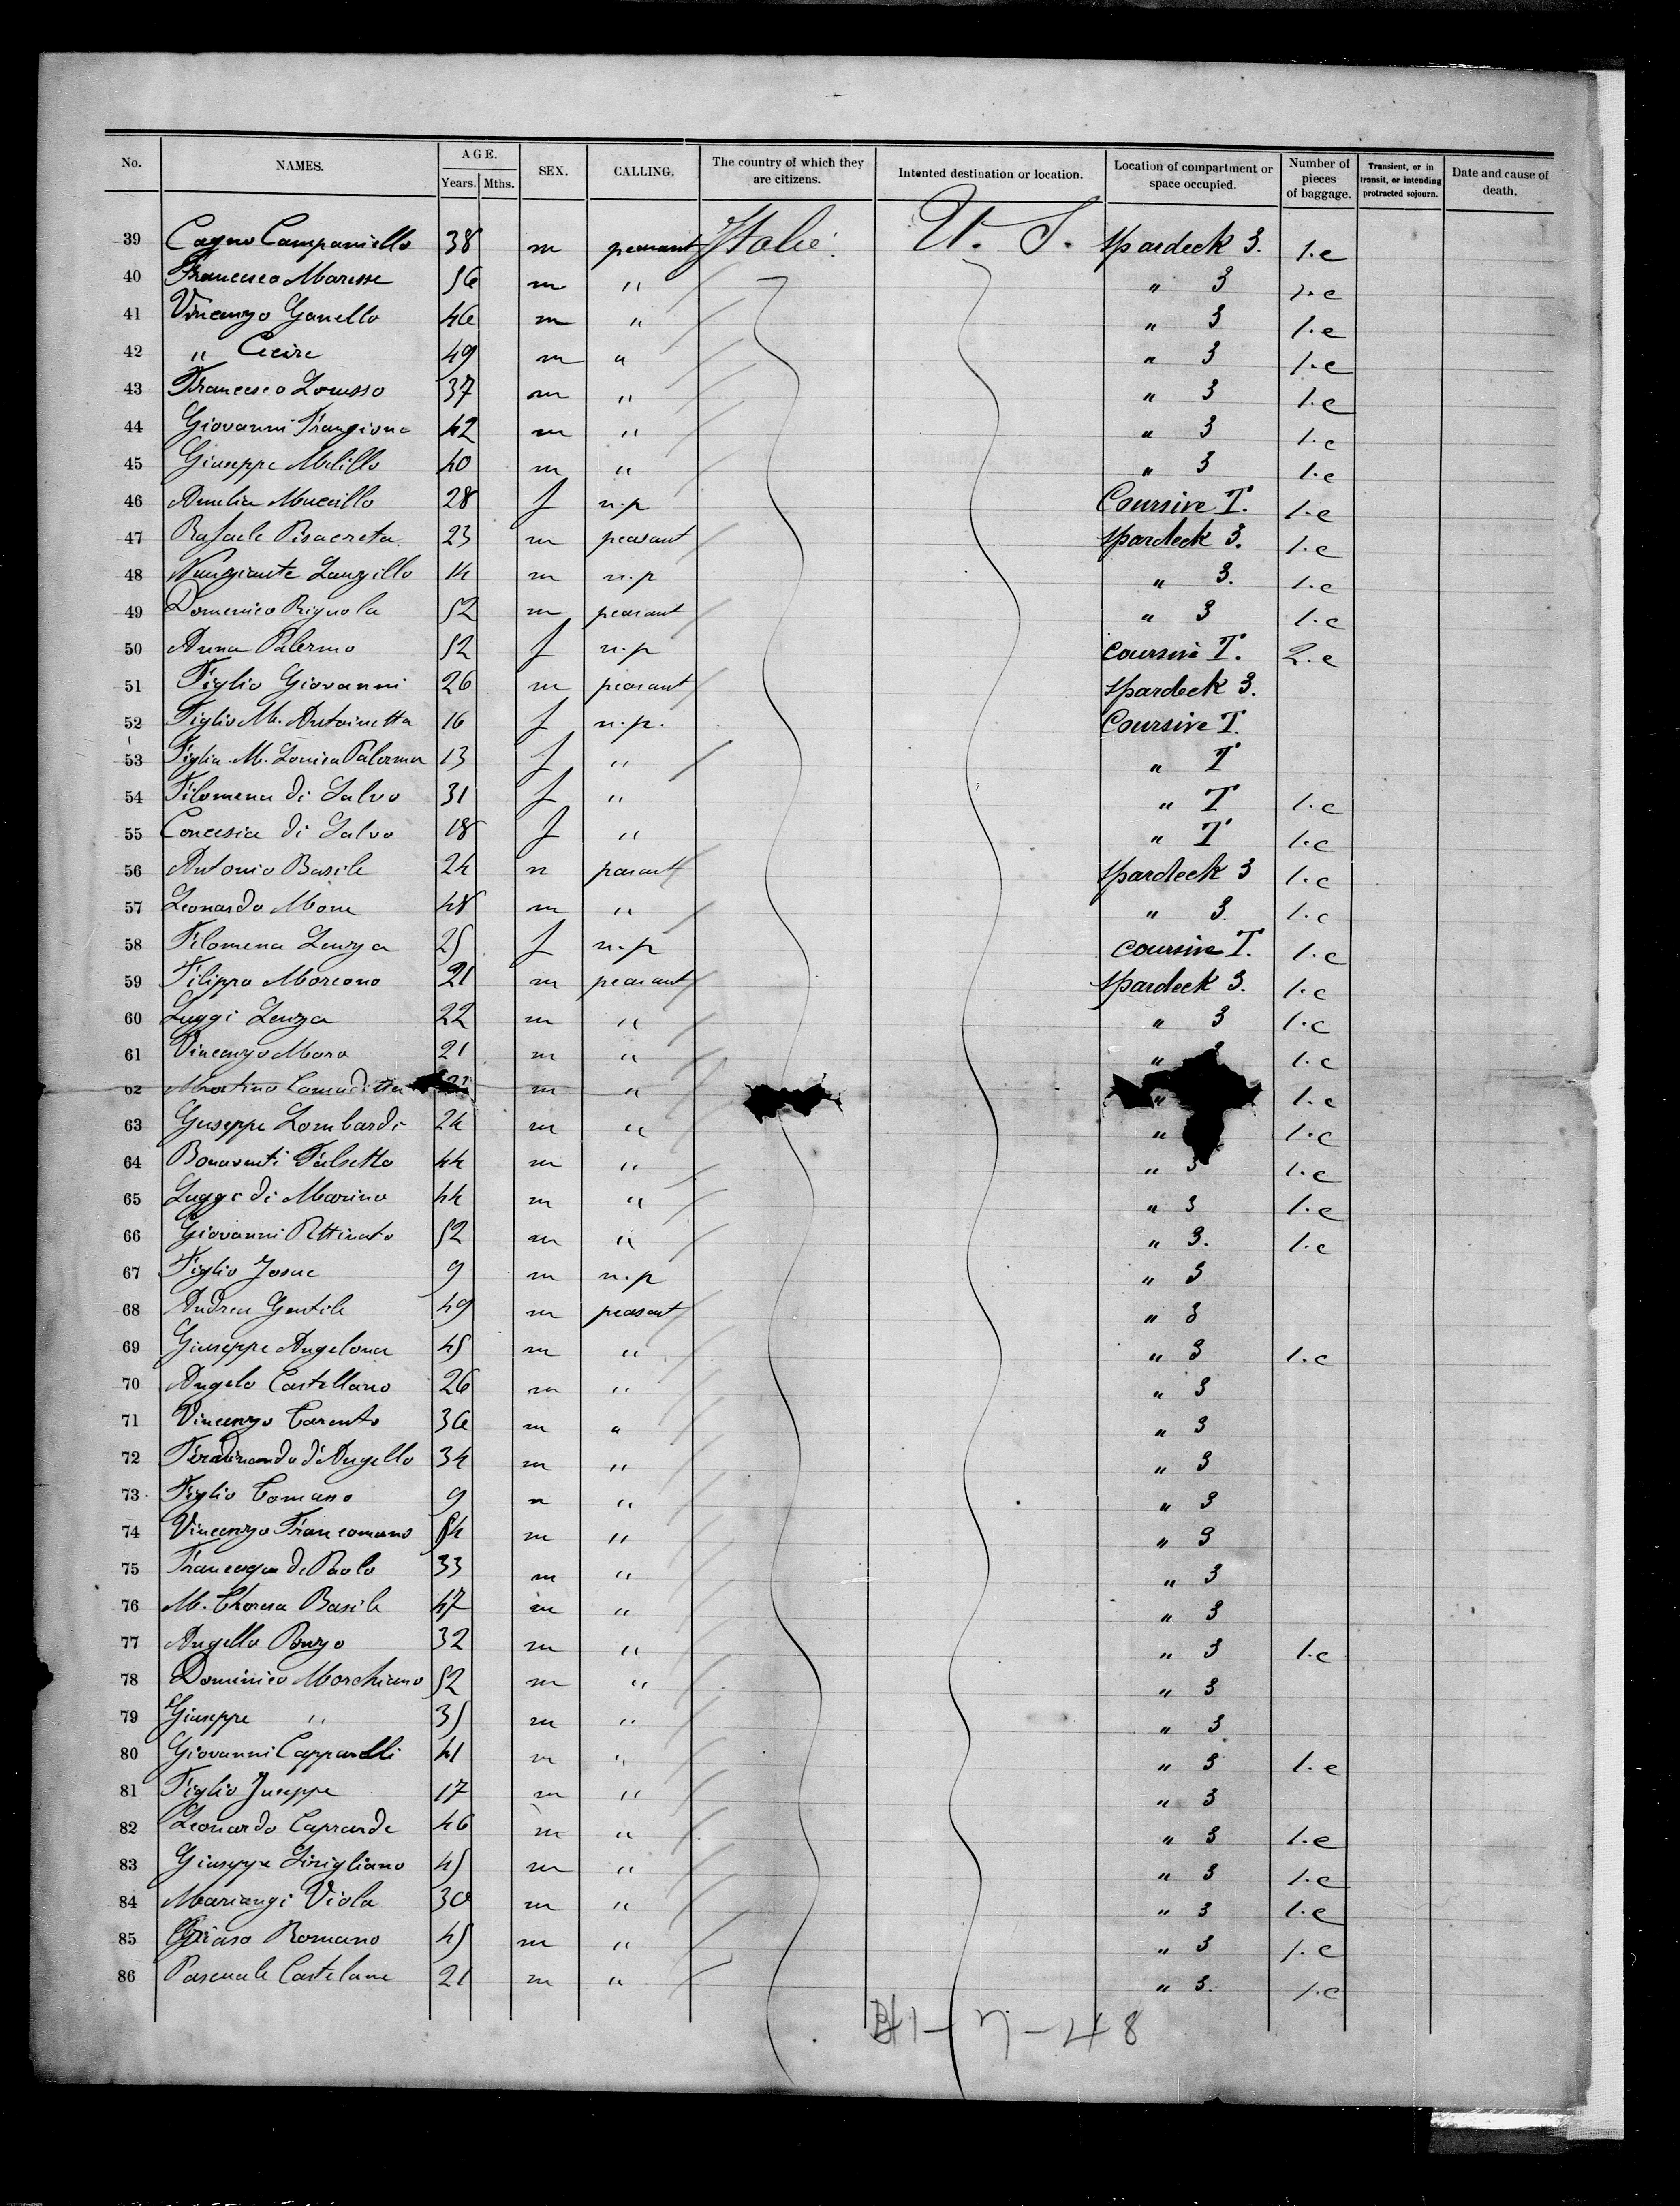 No. NAMES. AGE. Years. Mths. SEX. CALLING. The country of which they are citizens. Intented destination or location. Location of compartment or space occupied. Number of pieces of baggage. Transient, or in transit, or intending protracted sojourn. Date and cause of death.
39 Cagno Campaniello 38 m peasant Italie U. S. Spardeck 3. 1.c
40 Francesco Maresse 56 m " " 3 1.c
41 Vincenzo Ganello 46 m " " 3 1.c
42 " Cicire 49 m " " 3 1.c
43 Francesco Lorusso 37 m " " 3 1.c
44 Giovanni Frangione 42 m " " 3 1.c
45 Giuseppe Melillo 40 m " " 3 1.c
46 Amelia Mucillo 28 f n.p Coursive T. 1.c
47 Rafaele Pisacreta 23 m peasant Spardeck 3. 1.c
48 Nunziante Lanzillo 14 m n.p " 3. 1.c
49 Domenico Rignola 52 m peasant " 3 1.c
50 Anna Palermo 52 f n.p Coursive T. 2.c
51 Figlio Giovanni 26 m peasant Spardeck 3.
52 Figlio M. Antoinetta 16 f n.p. Coursive T.
53 Figlia M. Louisa Palerma 13 f " " T
54 Filomena di Salvo 31 f " " T 1.c
55 Concesia di Salvo 18 f " " T 1.c
56 Antonio Basile 24 m peasant Spardeck 3 1.c
57 Leonardo Mone 48 m " " 3. 1.c
58 Filomena Lenza 25 f n.p coursive T. 1.c
59 Filippo Morcono 21 m peasant Spardeck 3. 1.c
60 Luggi Lenza 22 m " " 3 1.c
61 Vincenzo Mora 21 m " " 3 1.c
62 Martino m " " 1.c
63 Guseppe Lombardi 24 m " " 1.c
64 Bonaventi Falsetto 44 m " " 3 1.c
65 Luggi di Marino 44 m " " 3 1.c
66 Giovanni Pettinato 52 m " " 3. 1.c
67 Figlio Josue 9 m n.p " 3
68 Andrea Gentile 49 m peasant " 3
69 Giuseppe Angelona 45 m " " 3 1.c
70 Angelo Castellano 26 m " " 3
71 Vincenzo Carento 36 m " " 3
72 Ferdinando d'Angello 34 m " " 3
73 Figlio Tomaso 9 m " " 3
74 Vincenzo Francomano 54 m " " 3
75 di Paolo 33 m " " 3
76 M. Theresa Basile 47 m " " 3
77 Angello Ponzo 32 m " " 3 1.c
78 Dominico Marchiano 52 m " " 3
79 Giuseppe " 35 m " " 3
80 Giovanni Capparelli 41 m " " 3 1.c
81 Figlio Juseppe 17 m " " 3
82 Leonardo Caprarde 46 m " " 3 1.c
83 Giuseppe Sirigliano 45 m " " 3 1.c
84 Mariangi Viola 30 m " " 3 1.c
85 Romano 45 m " " 3 1.c
86 Pascuale Castelane 21 m " " 3. 1.c